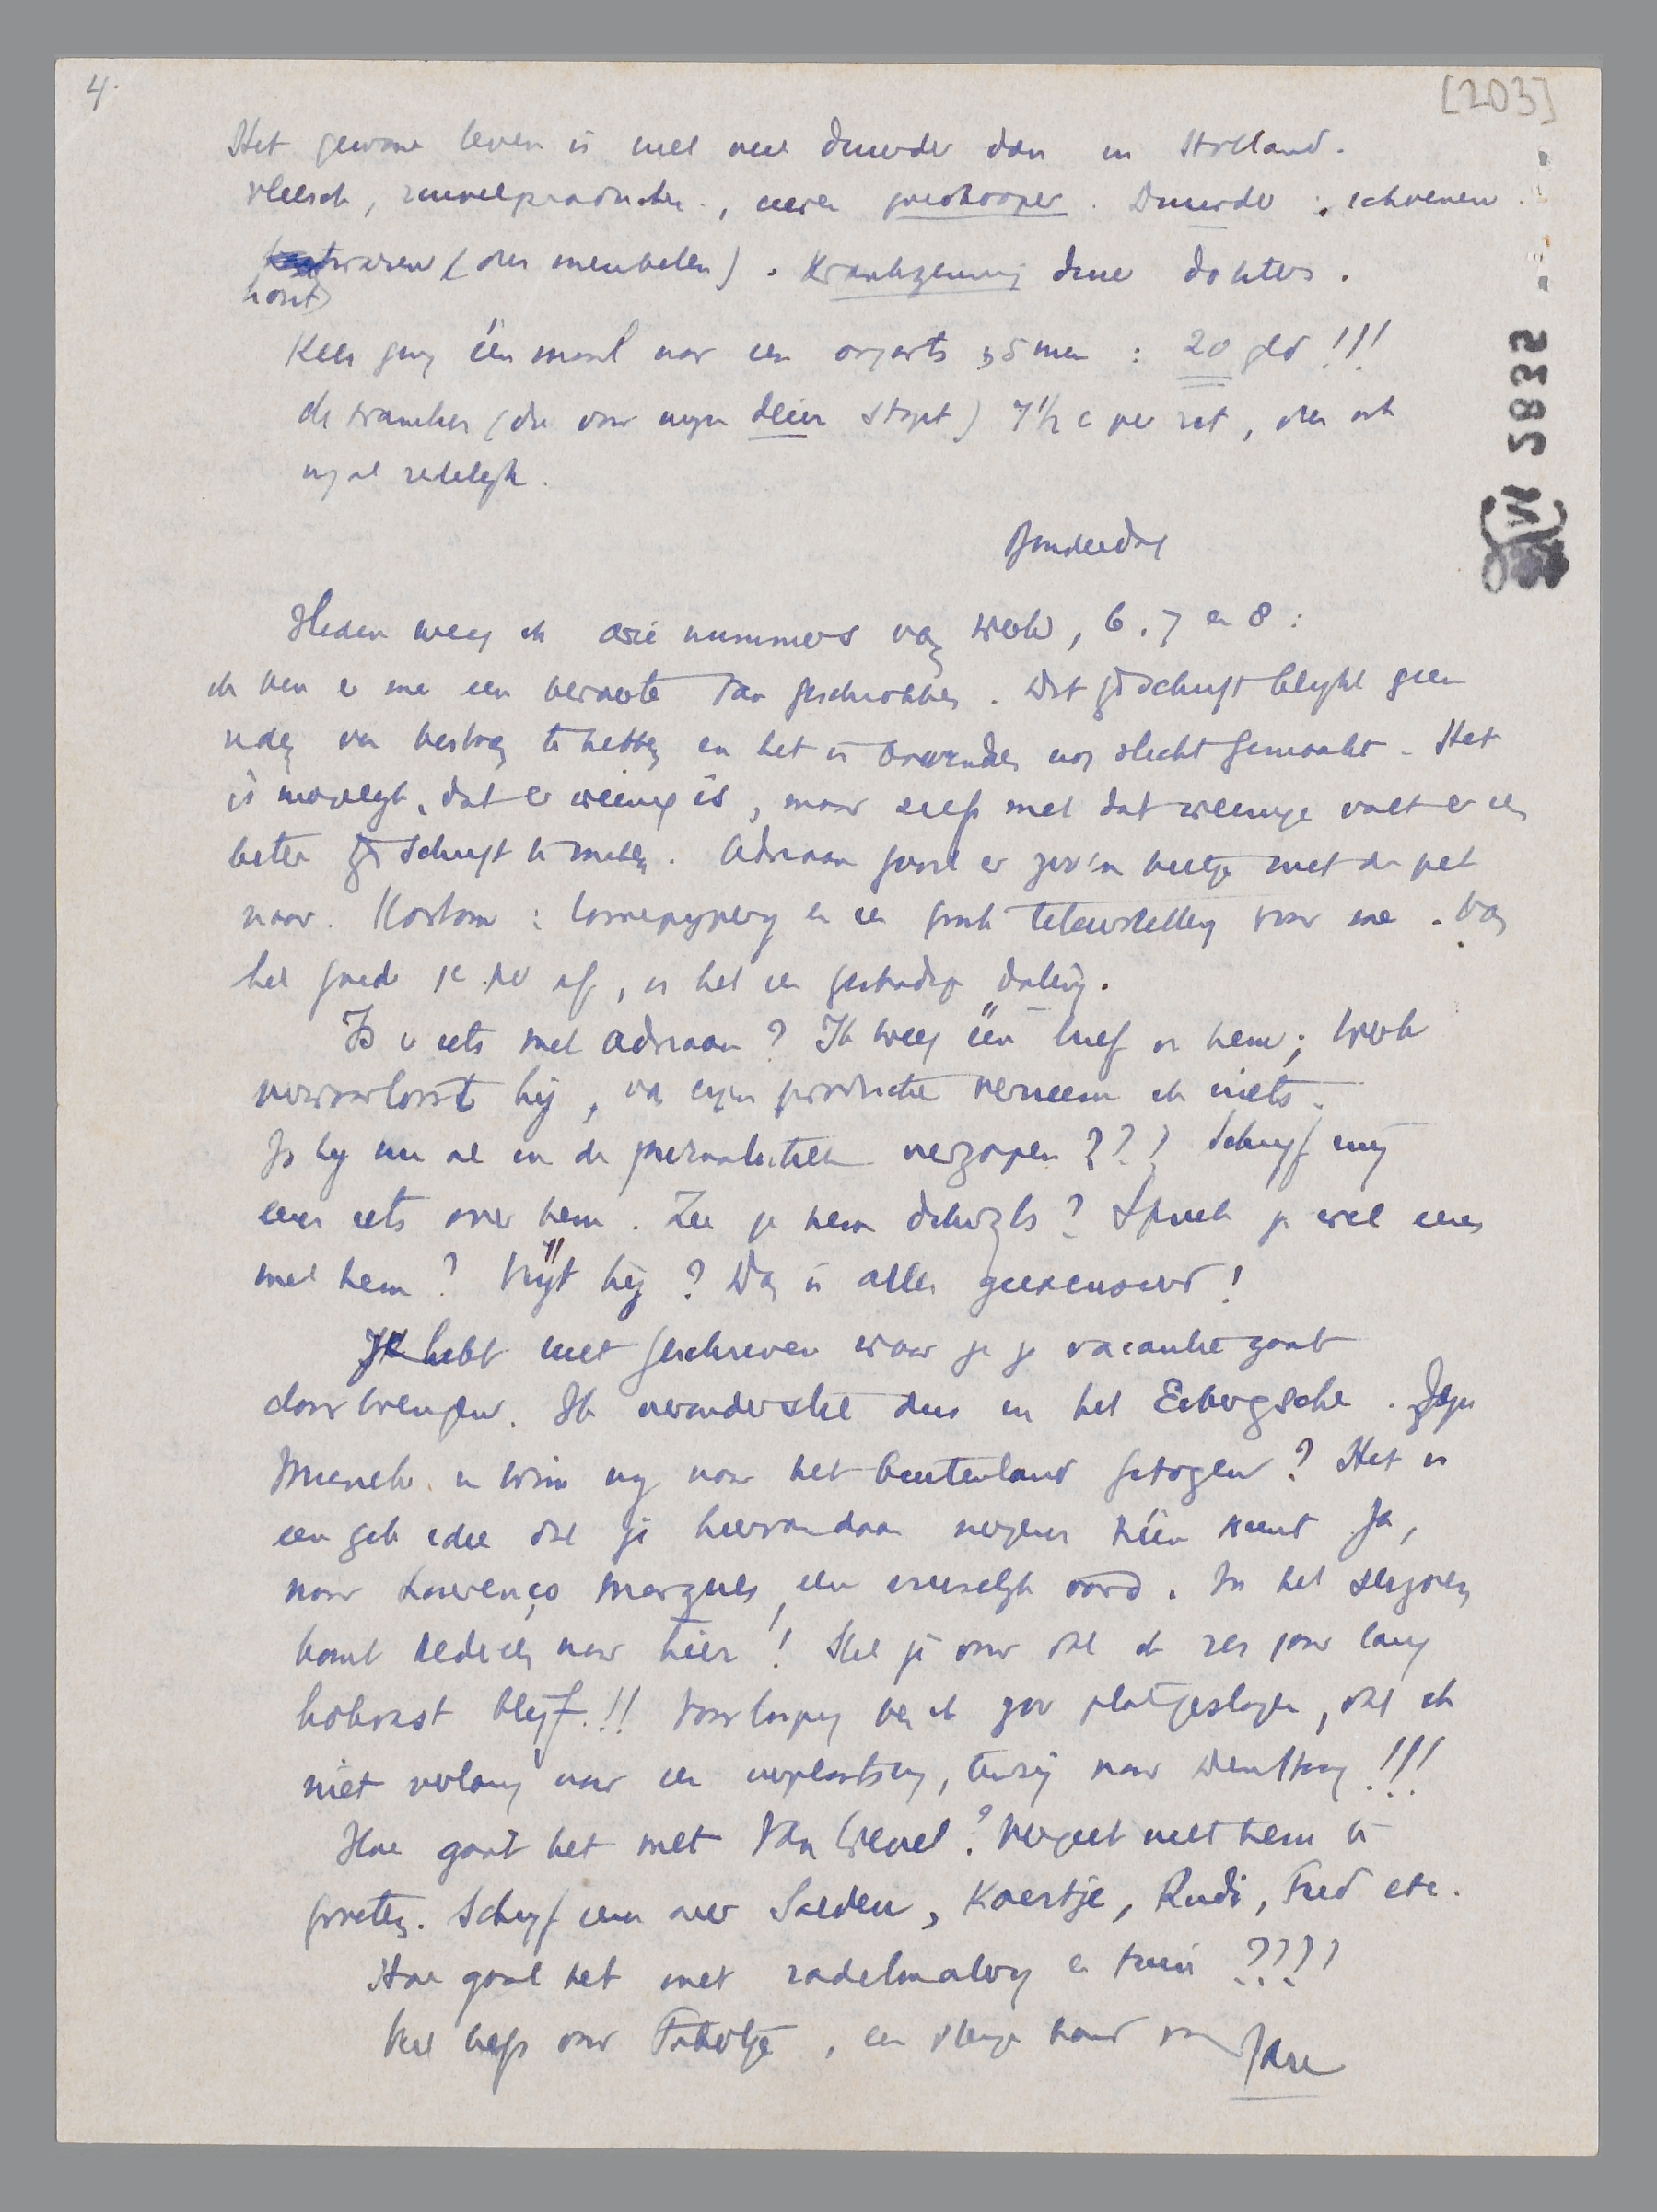 4.
[203]
Het gewone leven is niet veel duurder dan in Holland.
vleesch, zuivelproducten, eieren goedkooper. Duurder : schoenen
waren (dus meubelen). Krankzinnig dure dokters.
hout
Kees ging één maal naar een oogarts, 35 min : 20 gld !!!
de tramkaa (die voor mijn deur stopt) 7½ c per rit, dus ook
nog al redelijk.
Donderdag
Heden kreeg ik drie nummers van Werk, 6, 7 en 8 :
ik ben er me een beroerte van geschrokken. Dat tijdschrift blijkt geen
reden van bestaan te hebben en het is bovendien nog slecht gemaakt. Het
is mogelijk, dat er weinig is, maar zelfs met dat weinige valt er een
beter tijdschrift te maken. Adriaan gooit er zoo'n beetje met de pet
naar. Kortom : lamepijperij en een groote teleurstelling voor me. Van
het goede af, is het een gestadige daling.
Is er iets met Adriaan? Ik kreeg één brief van hem; Werk
verwaarloost hij, van eigen productie verneem ik niets.
Is hij nu al in de journalistiek verzopen??? Schrijf mij
eens iets over hem. Zie je hem dikwijls? Spreek je wel eens
met hem? Vrijt hij? Dan is alles geëxcuseerd!
Je hebt niet geschreven waar je je vacantie gaat
doorbrengen. Ik veronderstel dus in het Eibergsche. Zijn
Mieneke en Wim nog naar het buitenland getogen? Het is
een gek idee dat je hiervandaan nergens héén kunt. Ja,
naar Lourenço Marques, een vreeselijk oord. In het seizoen
komt iedereen naar hier! Stel je voor dat ik zes jaar lang
hokvast blijf!!! Voorloopig ben ik zoo platgeslagen, dat ik
niet verlang naar een verplaatsing, tenzij naar Den Haag!!!
Hoe gaat het met Van Wessel? Vergeet niet hem te
groeten. Schrijf eens over Salden, Koertje, Rudi, Fred etc.
Hoe gaat het met zadelmakerij en tuin ????
Veel liefs voor Tabotje, een stevige hand van Jan